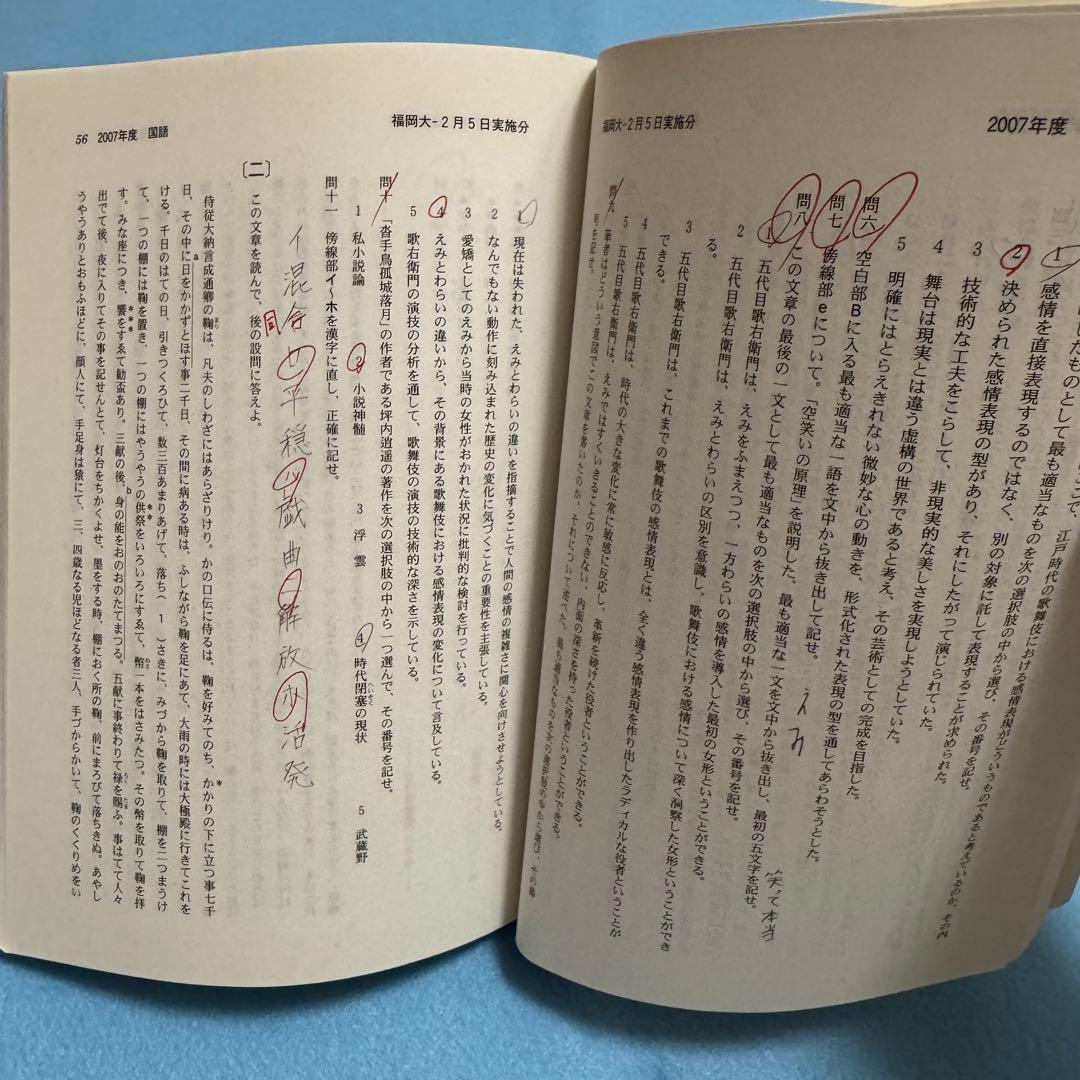 2007年度
福岡大−2月5日実施分
感情を直接表現するのではなく、別の対象に託して表現することが求められた。
2 決められた感情表現の型があり、それにしたがって演じられていた。
3 技術的な工夫をこらして、非現実的な美しさを実現しようとしていた。
4 舞台は現実とは違う虚構の世界であると考え、その芸術としての完成を目指した。
5 明確にはとらえきれない微妙な心の動きを、形式化された表現の型を通してあらわそうとした。
問六 空白部Bに入る最も適当な一語を文中から抜き出して記せ。
えみ
問七 傍線部eについて。「空笑いの原理」を説明した、最も適当な一文を文中から抜き出し、最初の五文字を記せ。
笑って本当
問八 この文章の最後の一文として最も適当なものを次の選択肢の中から選び、その番号を記せ。
1 五代目歌右衛門は、えみをふまえつつ、一方わらいの感情を導入した最初の女形ということができる。
2 五代目歌右衛門は、えみとわらいの区別を意識し、歌舞伎における感情について深く洞察した女形ということができ
る。
3 五代目歌右衛門は、これまでの歌舞伎の感情表現とは、全く違う感情表現を作り出したラディカルな役者ということが
できる。
4 五代目歌右衛門は、時代の大きな変化に常に敏感に反応し、革新を続けた役者ということができる。
5 五代目歌右衛門は、えみではすくいきることのできない、内面の深さを持った役者ということができる。
問九 筆者はどういう意図でこの文章を書いたのか、それについて述べた、最も適当なものを次の選択肢の中から選び、その番
号を記せ。
福岡大−2月5日実施分
56 2007年度 国語
1 現在は失われた、えみとわらいの違いを指摘することで人間の感情の複雑さに関心を向けさせようとしている。
2 なんでもない動作に刻み込まれた歴史の変化に気づくことの重要性を主張している。
3 愛矯としてのえみから当時の女性がおかれた状況に批判的な検討を行っている。
4 えみとわらいの違いから、その背景にある歌舞伎における感情表現の変化について言及している。
5 歌右衛門の演技の分析を通して、歌舞伎の演技の技術的な深さを示している。
問十 「沓手鳥孤城落月」の作者である坪内逍遥の著作を次の選択肢の中から一つ選んで、その番号を記せ。
1 私小説論 2 小説神髄 3 浮雲 4 時代閉塞の現状 5 武蔵野
問十一 傍線部イ〜ホを漢字に直し、正確に記せ。
イ 混合 ロ 平穏 ハ 戯曲 ニ 解放 ホ 活発
同
〔二〕 この文章を読んで、後の設問に答えよ。
侍従大納言成通卿の鞠は、凡夫のしわざにはあらざりけり。かの口伝に侍るは、鞠を好みてのち、かかりの下に立つ事七千
日、その中に日をかかずとほす事二千日、その間に病ある時は、ふしながら鞠を足にあて、大雨の時には大極殿に行きてこれを
ける。千日のはての日、引きつくろひて、数三百あまりあげて、落ち( 1 )さきに、みづから鞠を取りて、棚を二つまうけ
て、一つの棚には鞠を置き、一つの棚にはやうやうの供祭をいろいろにすゑて、幣一本をはさみたつ。その幣を取りて鞠を拝
す。みな座につき、饗をすゑて勧盃あり。三献の後、身の能をおのおのたてまつる。五献に事終わりて禄を賜ふ。事はてて人々
出でて後、夜に入りてその事を記せんとて、灯台をちかくよせ、墨をする時、棚におく所の鞠、前にまろびて落ちきぬ。あやし
うやうありとおもふほどに、顔人にて、手足身は猿にて、三、四歳なる児ほどなる者三人、手づからかいて、鞠のくくりめをい